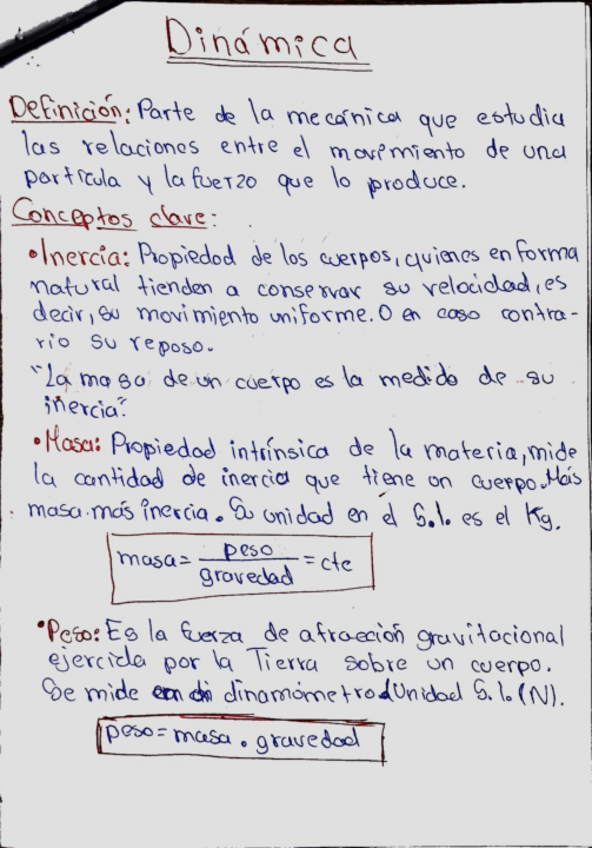 Dinámica
Definición: Parte de la mecánica que estudia
las relaciones entre el movimiento de una
partícula y la fuerza que lo produce.
Conceptos clave:
•Inercia: Propiedad de los cuerpos, quienes en forma
natural tienden a conservar su velocidad, es
decir, su movimiento uniforme. O en caso contra-
rio su reposo.
"La masa de un cuerpo es la medida de su
inercia".
•Masa: Propiedad intrínsica de la materia, mide
la cantidad de inercia que tiene un cuerpo. Más
masa más inercia. Su unidad en el S.I. es el Kg.
masa = peso / gravedad = cte
•Peso: Es la fuerza de atracción gravitacional
ejercida por la Tierra sobre un cuerpo.
Se mide dinamómetro Unidad S.I. (N).
peso = masa . gravedad